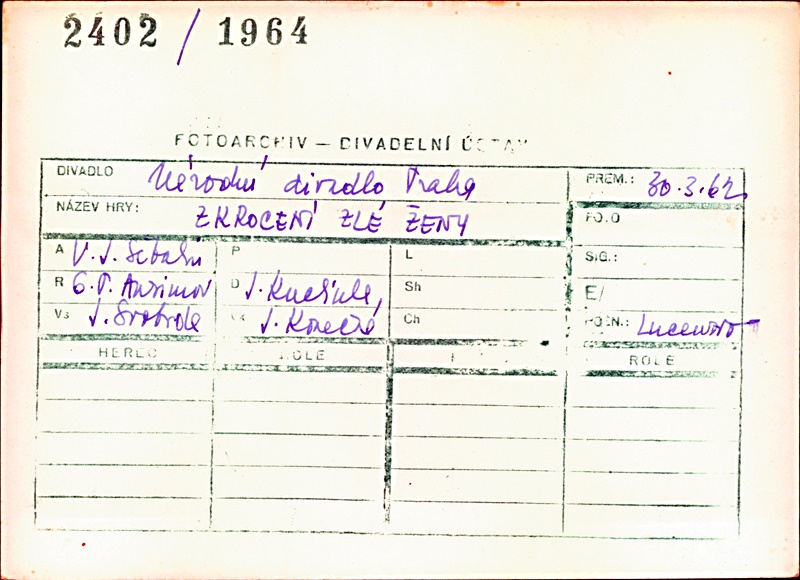 2402 / 1964
FOTOARCHIV – DIVADELNÍ ÚSTAV
DIVADLO Národní divadlo Praha PREM.: 30.3.62
NÁZEV HRY: ZKROCENÍ ZLÉ ŽENY FOTO
A V. J. Šebalin P L SIG.:
R G. P. Ansimov D J. Kuchinka, Sh E/
Vs J. Svoboda Vk J. Konečná Ch POZN.:
HEREC ROLE ROLE